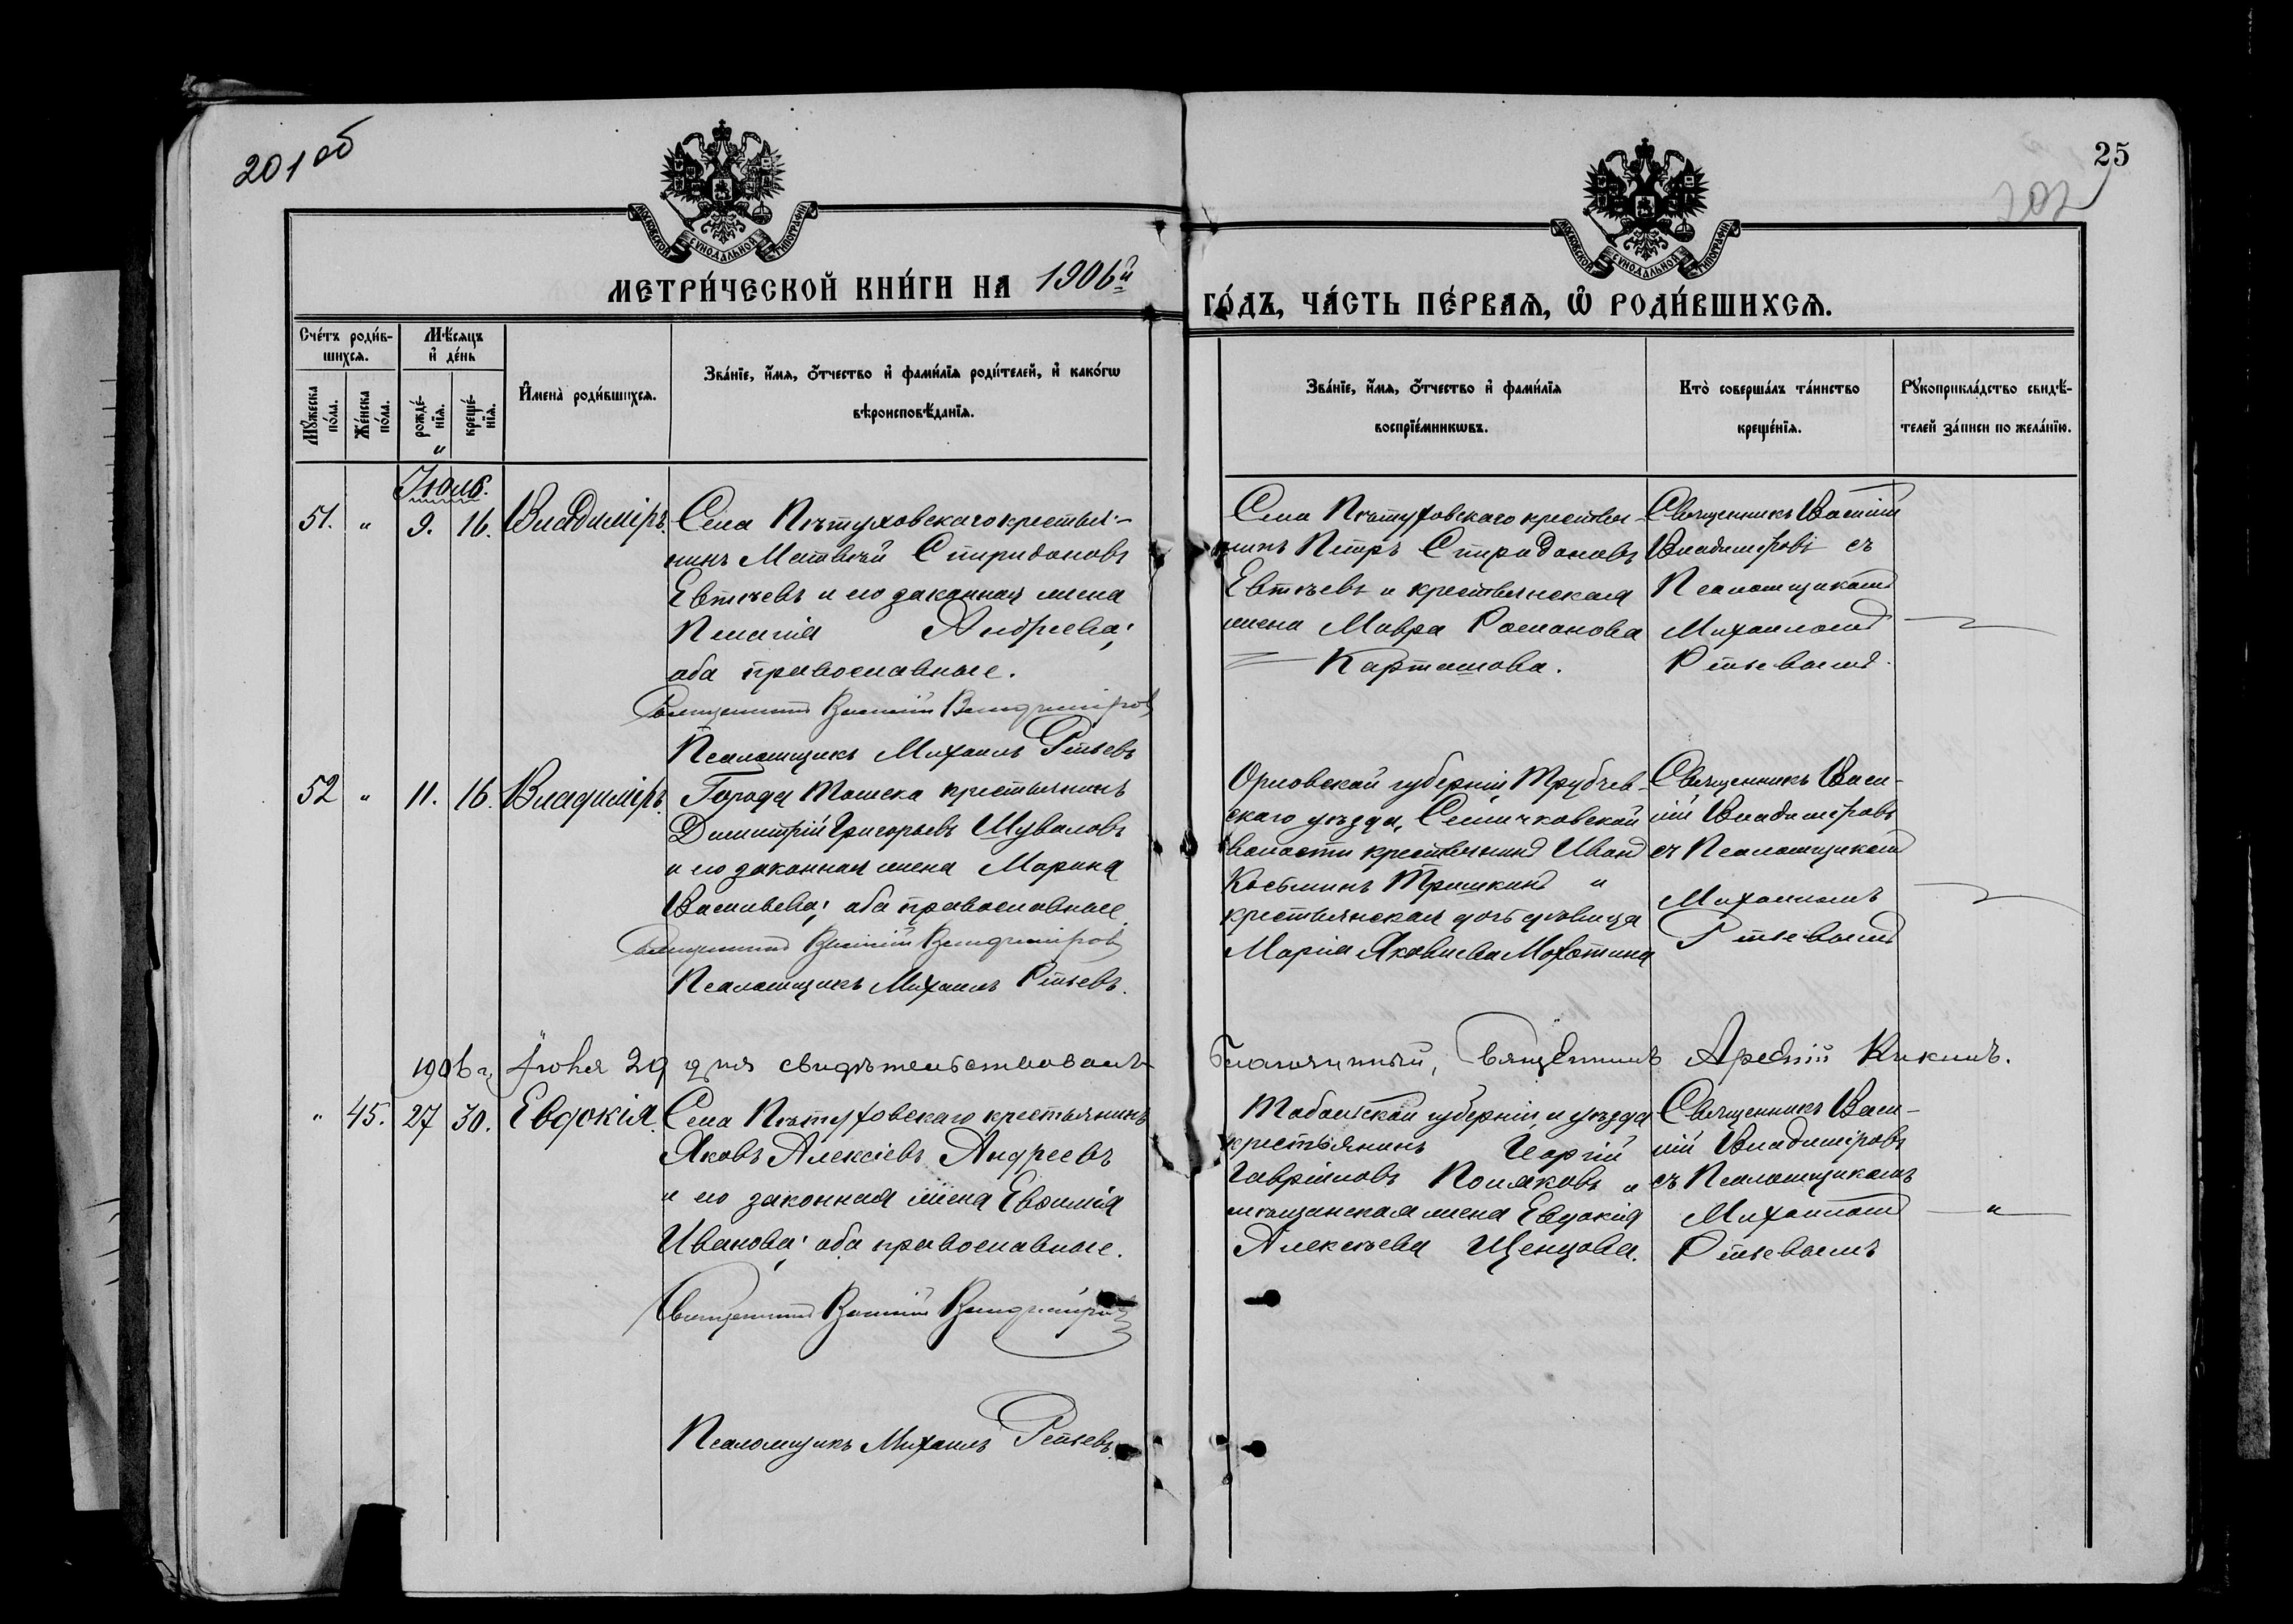 201 об
25
202
МОСКОВСКОЙ СѴНОДАЛЬНОЙ ТИПОГРАФІИ
МОСКОВСКОЙ СѴНОДАЛЬНОЙ ТИПОГРАФІИ
МЕТРИ́ЧЕСКОЙ КНИ́ГИ НА 1906й ГО́ДЪ, ЧА́СТЬ ПЕ́РВАѦ, Ѡ҆ РОДИ́ВШИХСѦ.
Сче́тъ роди́в-
шихсѧ.
Мꙋ́жеска по́ла.
Же́нска по́ла.
Мѣ́сѧцъ
и҆ де́нь
рожде́-
нїѧ.
креще́-
нїѧ.
И҆мена̀ роди́вшихсѧ.
Зва́нїе, и҆́мѧ, ѻ҆́тчество и҆ фами́лїѧ роди́телей, и҆ како́гѡ
вѣроисповѣ́данїѧ.
Зва́нїе, и҆́мѧ, ѻ҆́тчество и҆ фами́лїѧ
воспрїе́мникѡвъ.
Кто̀ соверша́лъ та́инство
креще́нїѧ.
Рꙋкоприкла́дство свидѣ́-
телей за́писи по жела́нїю.
Іюль.
51. " 9. 16. Владиміръ.
Села Пѣтуховскаго крестья-
нинъ Матвѣй Спиридоновъ
Евтѣевъ и его законная жена
Пелагія Андреева;
оба православные.
Священникъ Василій Владиміровъ
Псаломщикъ Михаилъ Рѣпьевъ
Села Пѣтуховскаго крестья-
нинъ Петръ Спиридоновъ
Евтѣевъ и крестьянская
жена Мавра Романова
Карташова.
Священникъ Василій
Владиміровъ съ
Псаломщикомъ
Михаиломъ
52 " 11. 16. Владиміръ.
Города Томска крестьянинъ
Димитрій Григорьевъ Шуваловъ
и его законная жена Марина
Васильева; оба православные.
Священникъ Василій Владиміровъ
Псаломщикъ Михаилъ
Орловской губерніи, Трубчев-
скаго уѣзда, Семичковской
волости крестьянинъ Иванъ
Косьминъ Тришкинъ и
крестьянская дочь дѣвица
Марія Яковлева Мохоткина
Священникъ Васи-
лій Владиміровъ
съ Псаломщикомъ
Михаиломъ
1906 г. Іюня 29 дня свидѣтельствовалъ Благочинный, Священникъ
" 45. 27 30. Евдокія.
Села Пѣтуховскаго крестьянинъ
Яковъ Алексіевъ Андреевъ
и его законная жена Евѳимія
Иванова; оба православные.
Священникъ Василій Владиміровъ
Псаломщикъ Михаилъ
Тобольской губерніи и уѣзда
крестьянинъ Георгій
Гавріиловъ Поляковъ и
мѣщанская жена Евдокія
Алексѣева Щенцова.
Священникъ Васи-
лій Владиміровъ
съ Псаломщикомъ
Михаиломъ